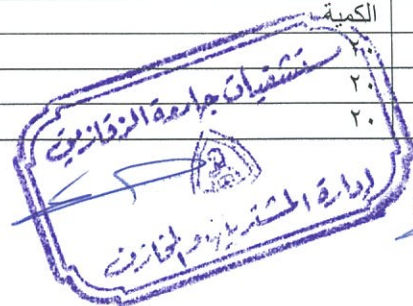 الكمية
٢٠
٢٠
٢٠
مستشفيات جامعة الزقازيق
إدارة المشتريات والمخازن